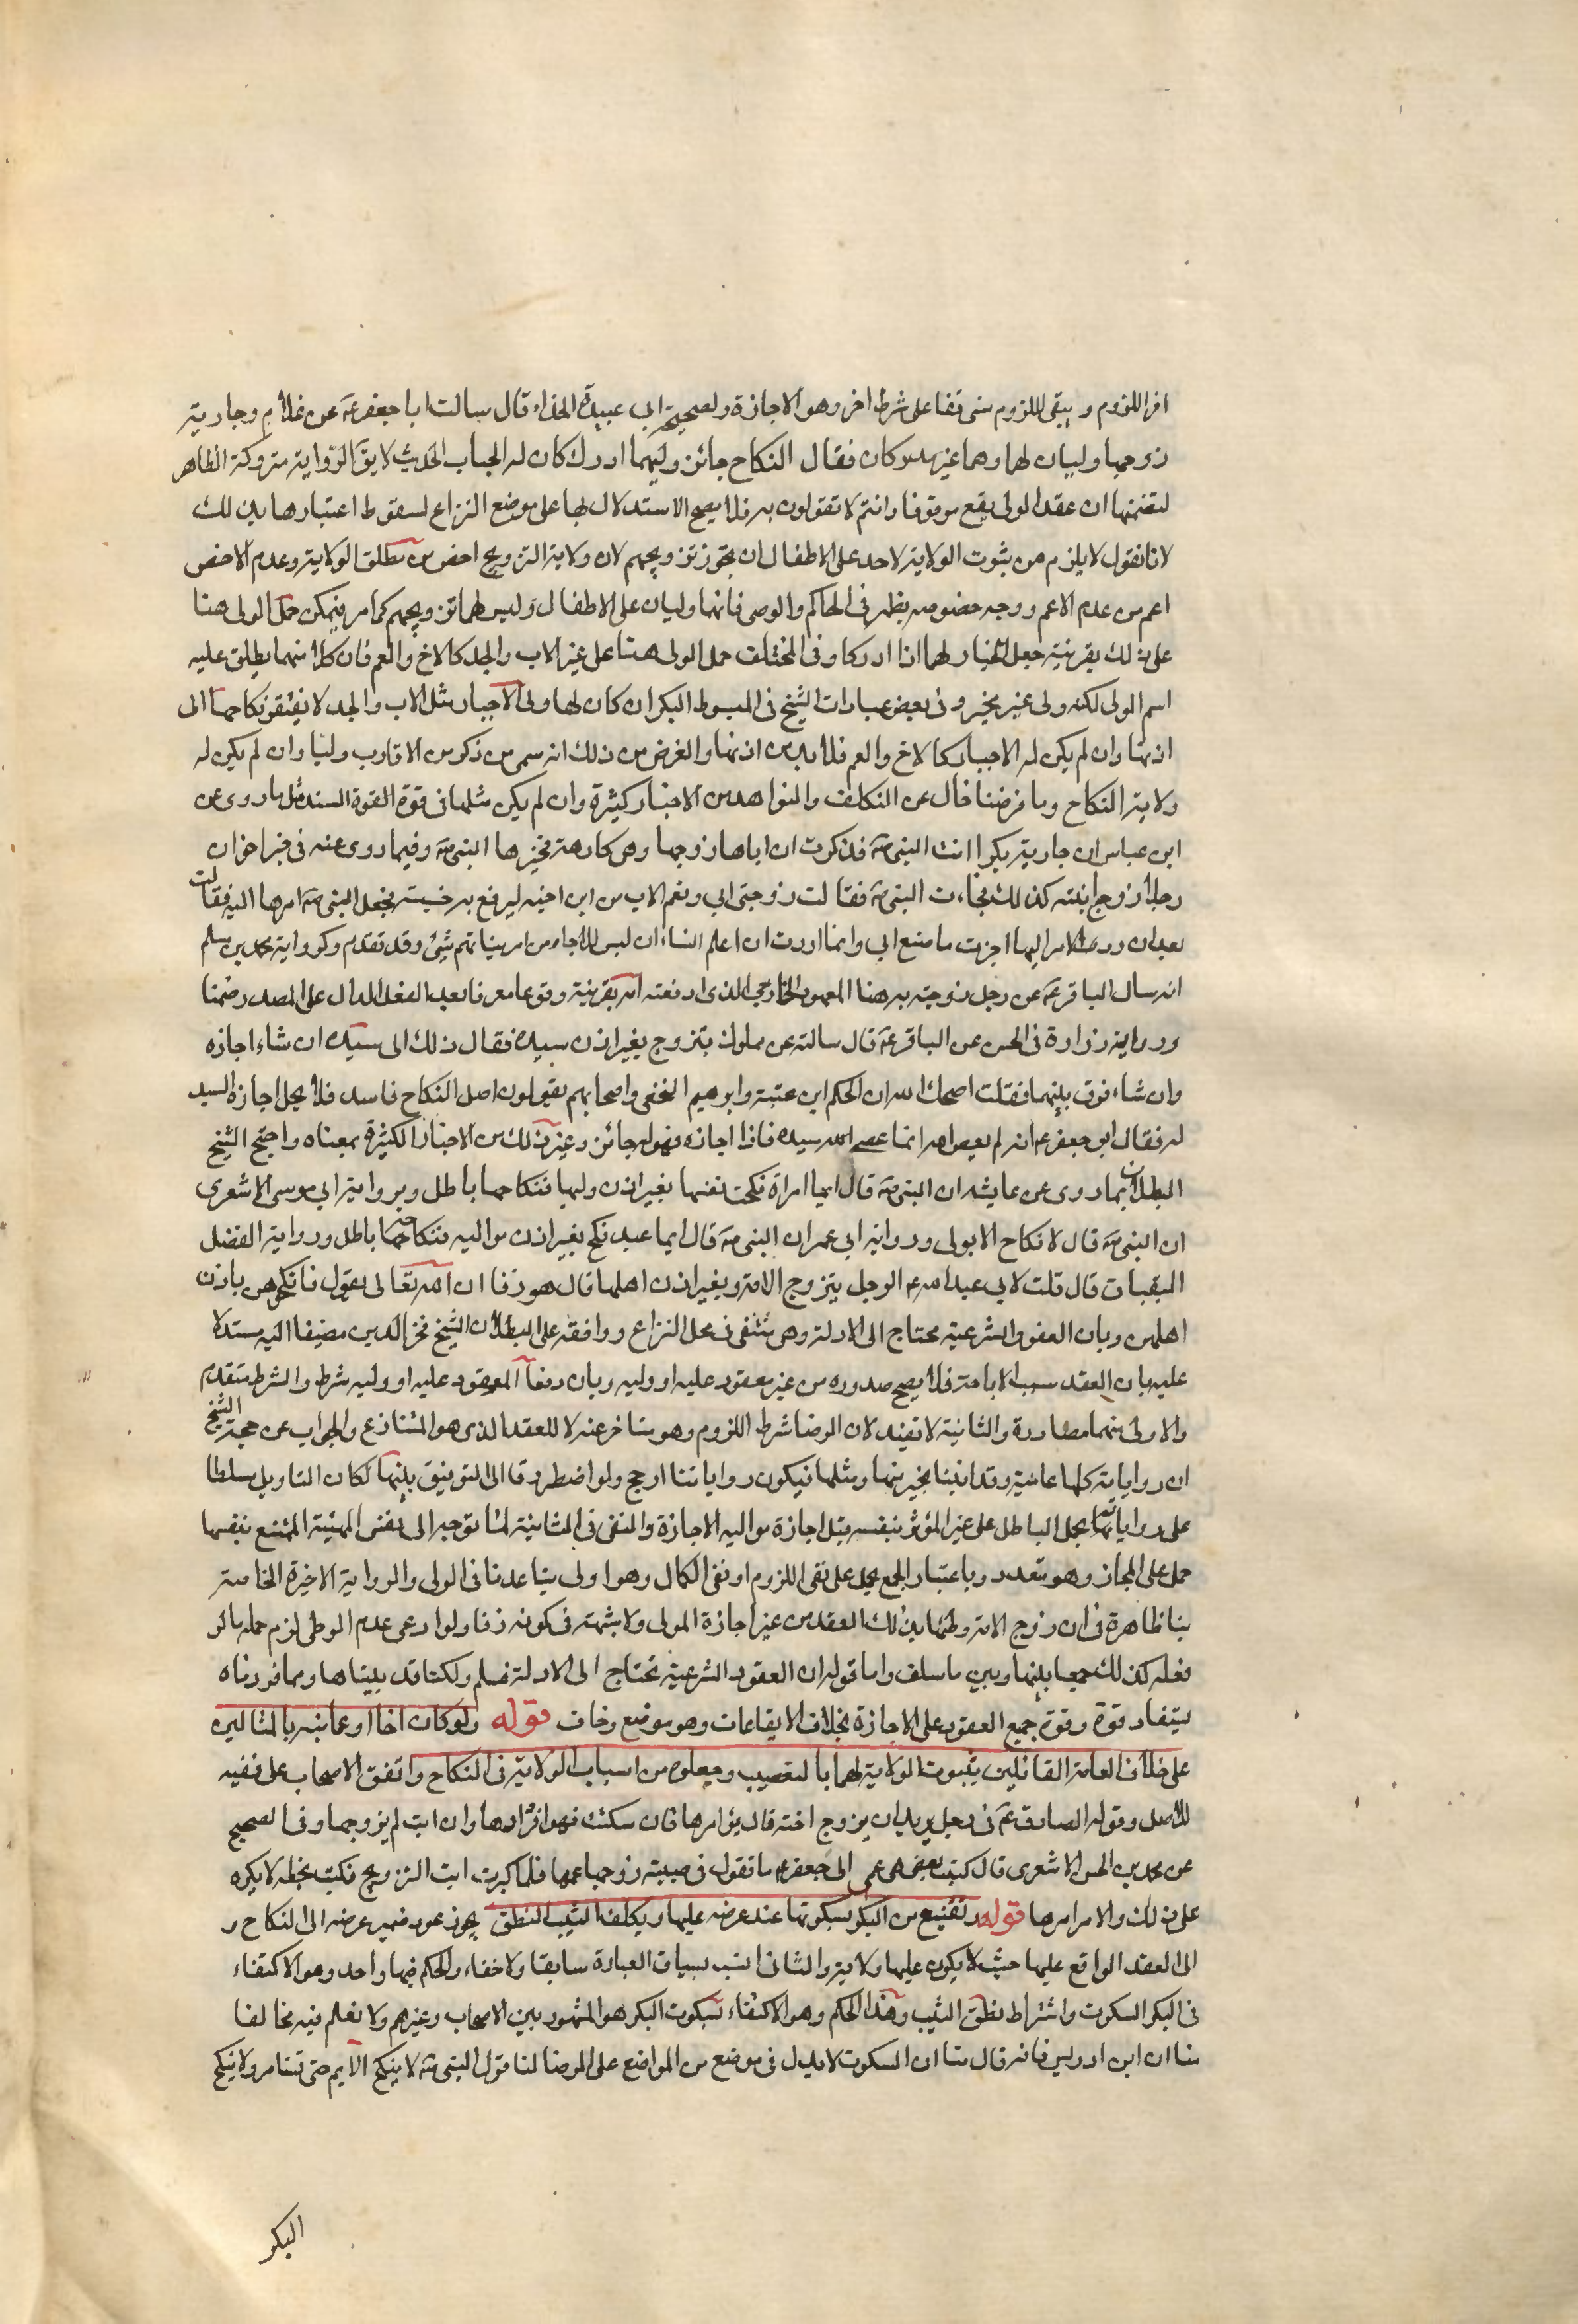 افراللزوم ويبقى اللزوم متوقفا على شرط اخر وهو الاجازة ولصحيحة ابى عبيدة الحذاء قال سالت ابا جعفر عم عن غلام وجارية
زوجها وليان لهما وهما غير مدركان فقال النكاح جائز وايهما ادرك كان له الخيار الحديث لايق الرواية متروكة الظاهر
لتضمنها ان عقد الولى يقع موقوفا وانتم لا تقولون به فلا يصح الاستدلال بها على موضع النزاع لسقوط اعتبارها بذلك
لانا نقول لا يلزم من ثبوت الولاية لاحد على الاطفال ان يجوز تزويجهم لان ولاية التزويج اخص من مطلق الولاية وعدم الاخص
اعم من عدم الاعم ووجه خصوصه يظهر فى الحاكم والوصى فانهما وليان على الاطفال وليس لهما تزويجهم كما مر فيمكن حمل الولى هنا
على ذلك بقرينة جعل الخيار لهما اذا ادركا وفى المختلف حمل الولى هنا على غير الاب والجد كالاخ والعم فان كلا منهما يطلق عليه
اسم الولى لكنه ولى غير مجبر وفى بعض عبارات الشيخ فى المبسوط البكر ان كان لها ولى الاجبار مثل الاب والجد لا يفتقر نكاحها الى
اذنها وان لم يكن له الاجبار كالاخ والعم فلا بد من اذنها والغرض من ذلك انه سمى من ذكر من الاقارب وليا وان لم يكن له
ولاية النكاح وما فرضنا خال عن التكلف والشواهد من الاخبار كثيرة وان لم يكن مثلها فى قوة القوة السند مثل ما روى عن
ابن عباس ان جارية بكرا اتت النبى ص فذكرت ان اباها زوجها وهى كارهة فخيرها النبى ص وفيما روى عنه فى خبر اخر ان
رجلا زوج ابنته كذلك فجاءت النبى ص فقالت زوجنى ابى ونعم الاب من ابن اخيه ليرفع به خسيسته فجعل النبى ص امرها اليها فقالت
بعد ان رد الامر اليها اجزت ما صنع ابى وانما اردت ان اعلم النساء ان ليس للاباء من امر بناتهم شئ وقد تقدم وكرواية محمد بن مسلم
انه سال الباقر عم عن رجل زوجته به هنا المعهود الخارجى الذى ادعته امه بقرينة وقوعها معرفا بعد الفعل الدال على المصدر ضمنا
ورواية زرارة فى الحسن عن الباقر عم قال سالته عن مملوك يتزوج بغير اذن سيده فقال ذلك الى سيده ان شاء اجازه
وان شاء فرق بينهما فقلت اصلحك الله ان الحكم ابن عتبة وابرهيم النخعى واصحابهم يقولون اصل النكاح فاسد فلا يحل اجازة السيد
له فقال ابو جعفر عم انه لم يعص الله انما عصى سيده فاذا اجازه فهو له جائز وغير ذلك من الاخبار الكثيرة بمعناه واحتج الشيخ
البطلان بما روى عن عايشه ان النبى ص قال ايما امراة نكحت نفسها بغير اذن وليها فنكاحها باطل وبرواية ابى موسى الاشعرى
ان النبى ص قال لا نكاح الا بولى ورواية ابن عمر ان النبى ص قال ايما عبد نكح بغير اذن مواليه فنكاحه باطل ورواية الفضل
البقباق قال قلت لابى عبد الله عم الرجل يتزوج الامة بغير اذن اهلها قال هو زنا ان الله تعالى يقول فانكحوهن باذن
اهلهن وبان العقود الشرعية يحتاج الى الادلة وهى منتفى فى محل النزاع ووافقه على البطلان الشيخ فخر الدين مضيفا اليه مستدلا
عليه بان العقد سبب الاباحة فلا يصح صدوره من غير معقود عليه او وليه وبان رضا المعقود عليه او وليه شرط والشرط متقدم
والاولى منهما مصادرة والثانية لا تفيد لان الرضا شرط اللزوم وهو متاخر عنه لا للعقد الذى هو المتنازع والجواب عن حجة الشيخ
ان رواياته كلها عامية وقد اتينا بخير منها ومثلها فيكون رواياتنا ارجح ولو اضطررنا الى التوفيق بينهما لكان التاويل مسلطا
على رواياتهم بحمل الباطل على غير المؤثر بنفسه قبل اجازة مواليه الاجازة والنفى فى الثانية لما توجه الى نفس المهية الممتنع نفيها
حمل على المجاز وهو متعدد وباعتبار الجمع يحمل على نفى اللزوم او نفى الكمال وهو اولى بتباعدنا فى الولى والرواية الاخيرة الخامسة
بنا ظاهرة فى ان زوج الامة وطئها بذلك العقد من غير اجازة المولى ولا شبهة فى كونه زنا ولو ادعى عدم الوطى لزم حمله ما لو
فعله كذلك جمعا بينها وبين ما سلف واما قوله ان العقود الشرعية تحتاج الى الادلة فمسلم ولكنا قد بيناها ومما قررناه
يستفاد قوة وقوف جميع العقود على الاجازة بخلاف الايقاعات وهو موضع وفاق قوله ولو كان اخا او عما نبه بالمثالين
على خلاف العامة القائلين بثبوت الولاية لهما بالتعصيب وجعلوه من اسباب الولاية فى النكاح واتفق الاصحاب على نفيه
للاصل وقوله الصادق عم فى رجل يريد ان يزوج اخته قال يؤامرها فان سكتت فهو اقرارها وان ابت لم يزوجها وفى الصحيح
عن محمد بن الحسن الاشعرى قال كتب بعض بنى عمى الى ابى جعفر عم ما تقول فى صبية زوجها عمها فلما كبرت ابت التزويج فكتب بخطه لا يكره
على ذلك والامر امرها قوله ويقنع من البكر بسكوتها عند عرضه عليها ويكلف الثيب النطق يجوز عود ضمير عرضه الى النكاح و
الى العقد الواقع عليها حيث لا يكون عليها ولاية والثانى انسب بسياق العبارة سابقا ولاحقا والحكم فيهما واحد وهو الاكتفاء
فى البكر السكوت واشتراط نطق الثيب وهذا الحكم وهو الاكتفاء بسكوت البكر هو المشهور بين الاصحاب وغيرهم ولا نعلم فيه مخالفا
منا ان ابن ادريس فانه قال منا ان السكوت لا يدل فى موضع من المواضع على الرضا لنا قول النبى ص لا ينكح الايم حتى تستامر ولا ينكح
البكر